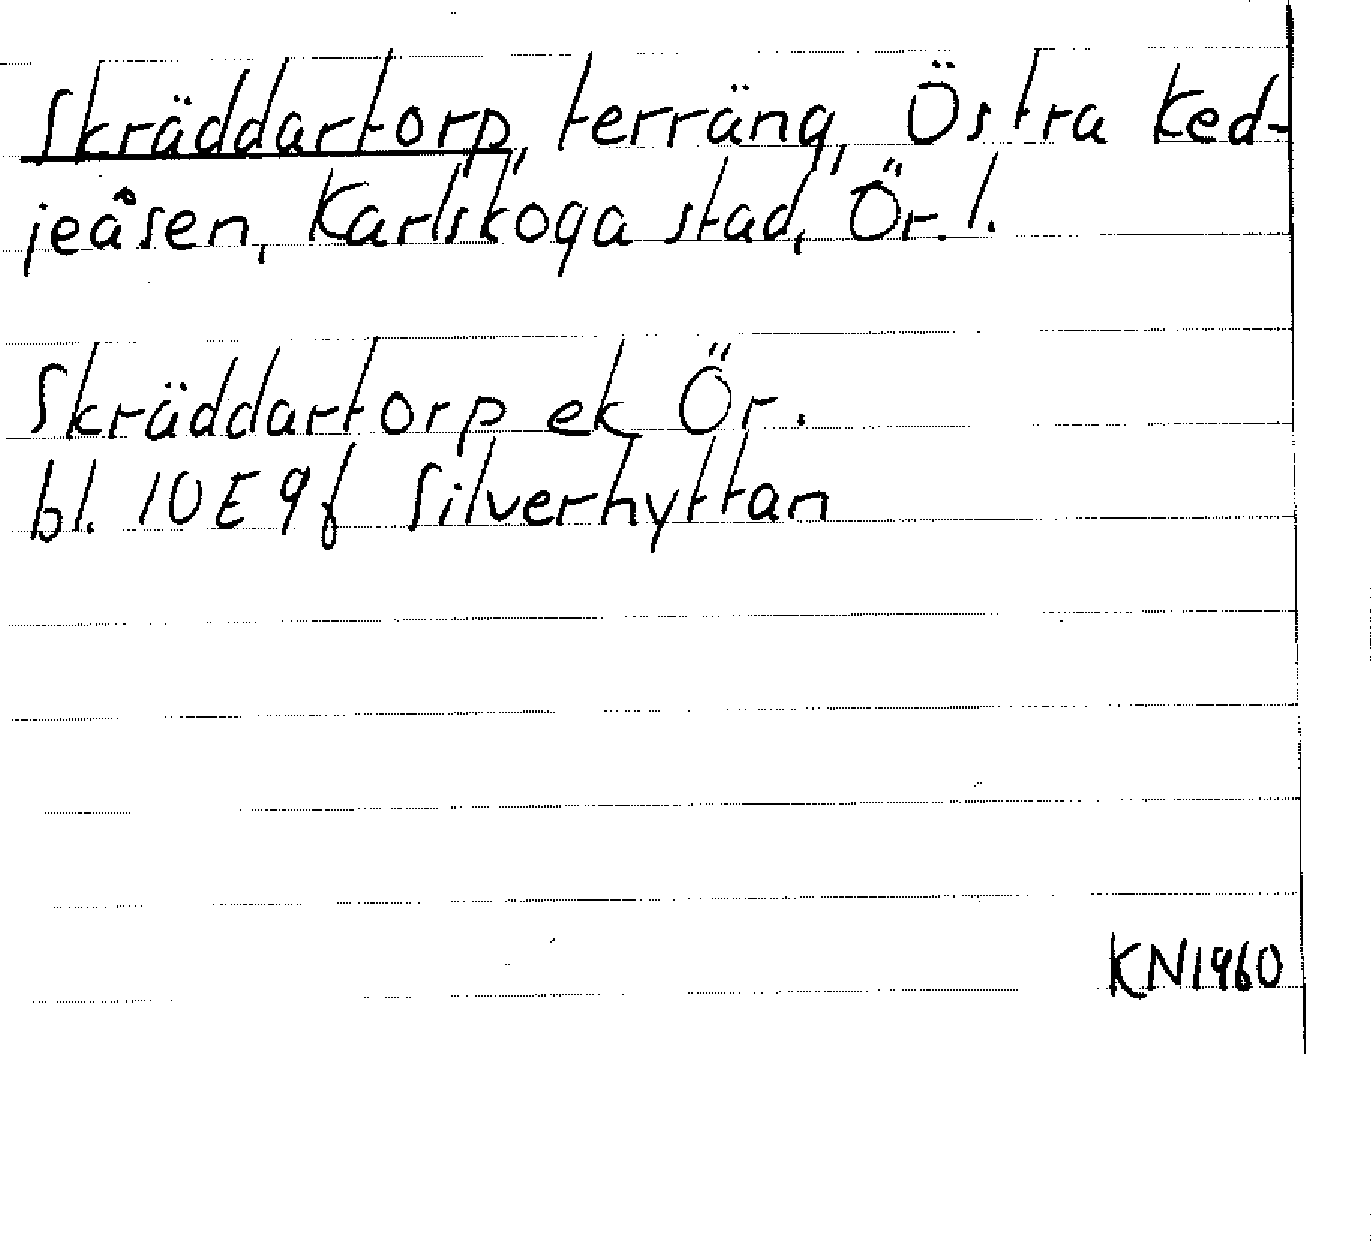 Skräddartorp, terräng, Östra Ked-
jeåsen, Karlskoga stad, Ör. l.
Skräddartorp ek Ör.
bl. 10E 9f Silverhyttan
KN1960